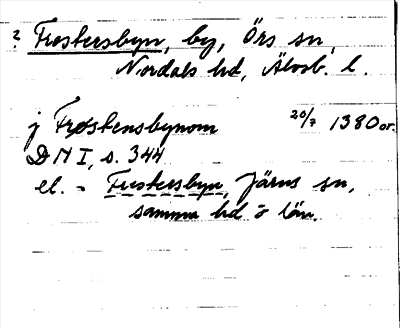 ? Frostersbyn, by, Örs sn,
Nordals hd, Älvsb. l.
j Frøstensbynom 20/7 1380 or.
DN I, s. 344
el. - Frustersbyn, Järns sn,
samma hd o län.